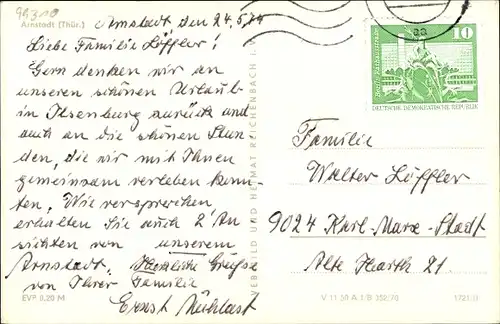 99310
Arnstadt (Thür.)
Arnstadt den 24.5.74
Liebe Familie Löffler!
Gern denken wir an
unseren schönen Urlaub
in Ilsenburg zurück und
auch an die schönen Stun
den, die wir mit Ihnen
gemeinsam verleben konn-
ten. Wie versprochen
erhalten Sie auch 2 An
sichten von unserem
Arnstadt. Herzliche Grüße
von Ihrer Familie
Ernst
EVP 0,20 M
VEB BILD UND HEIMAT REICHENBACH I. V.
10
DEUTSCHE DEMOKRATISCHE REPUBLIK
Familie
Walter Löffler
9024 Karl-Marx-Stadt
Alte Harth 21.
V 11 50 A 1/B 352/70